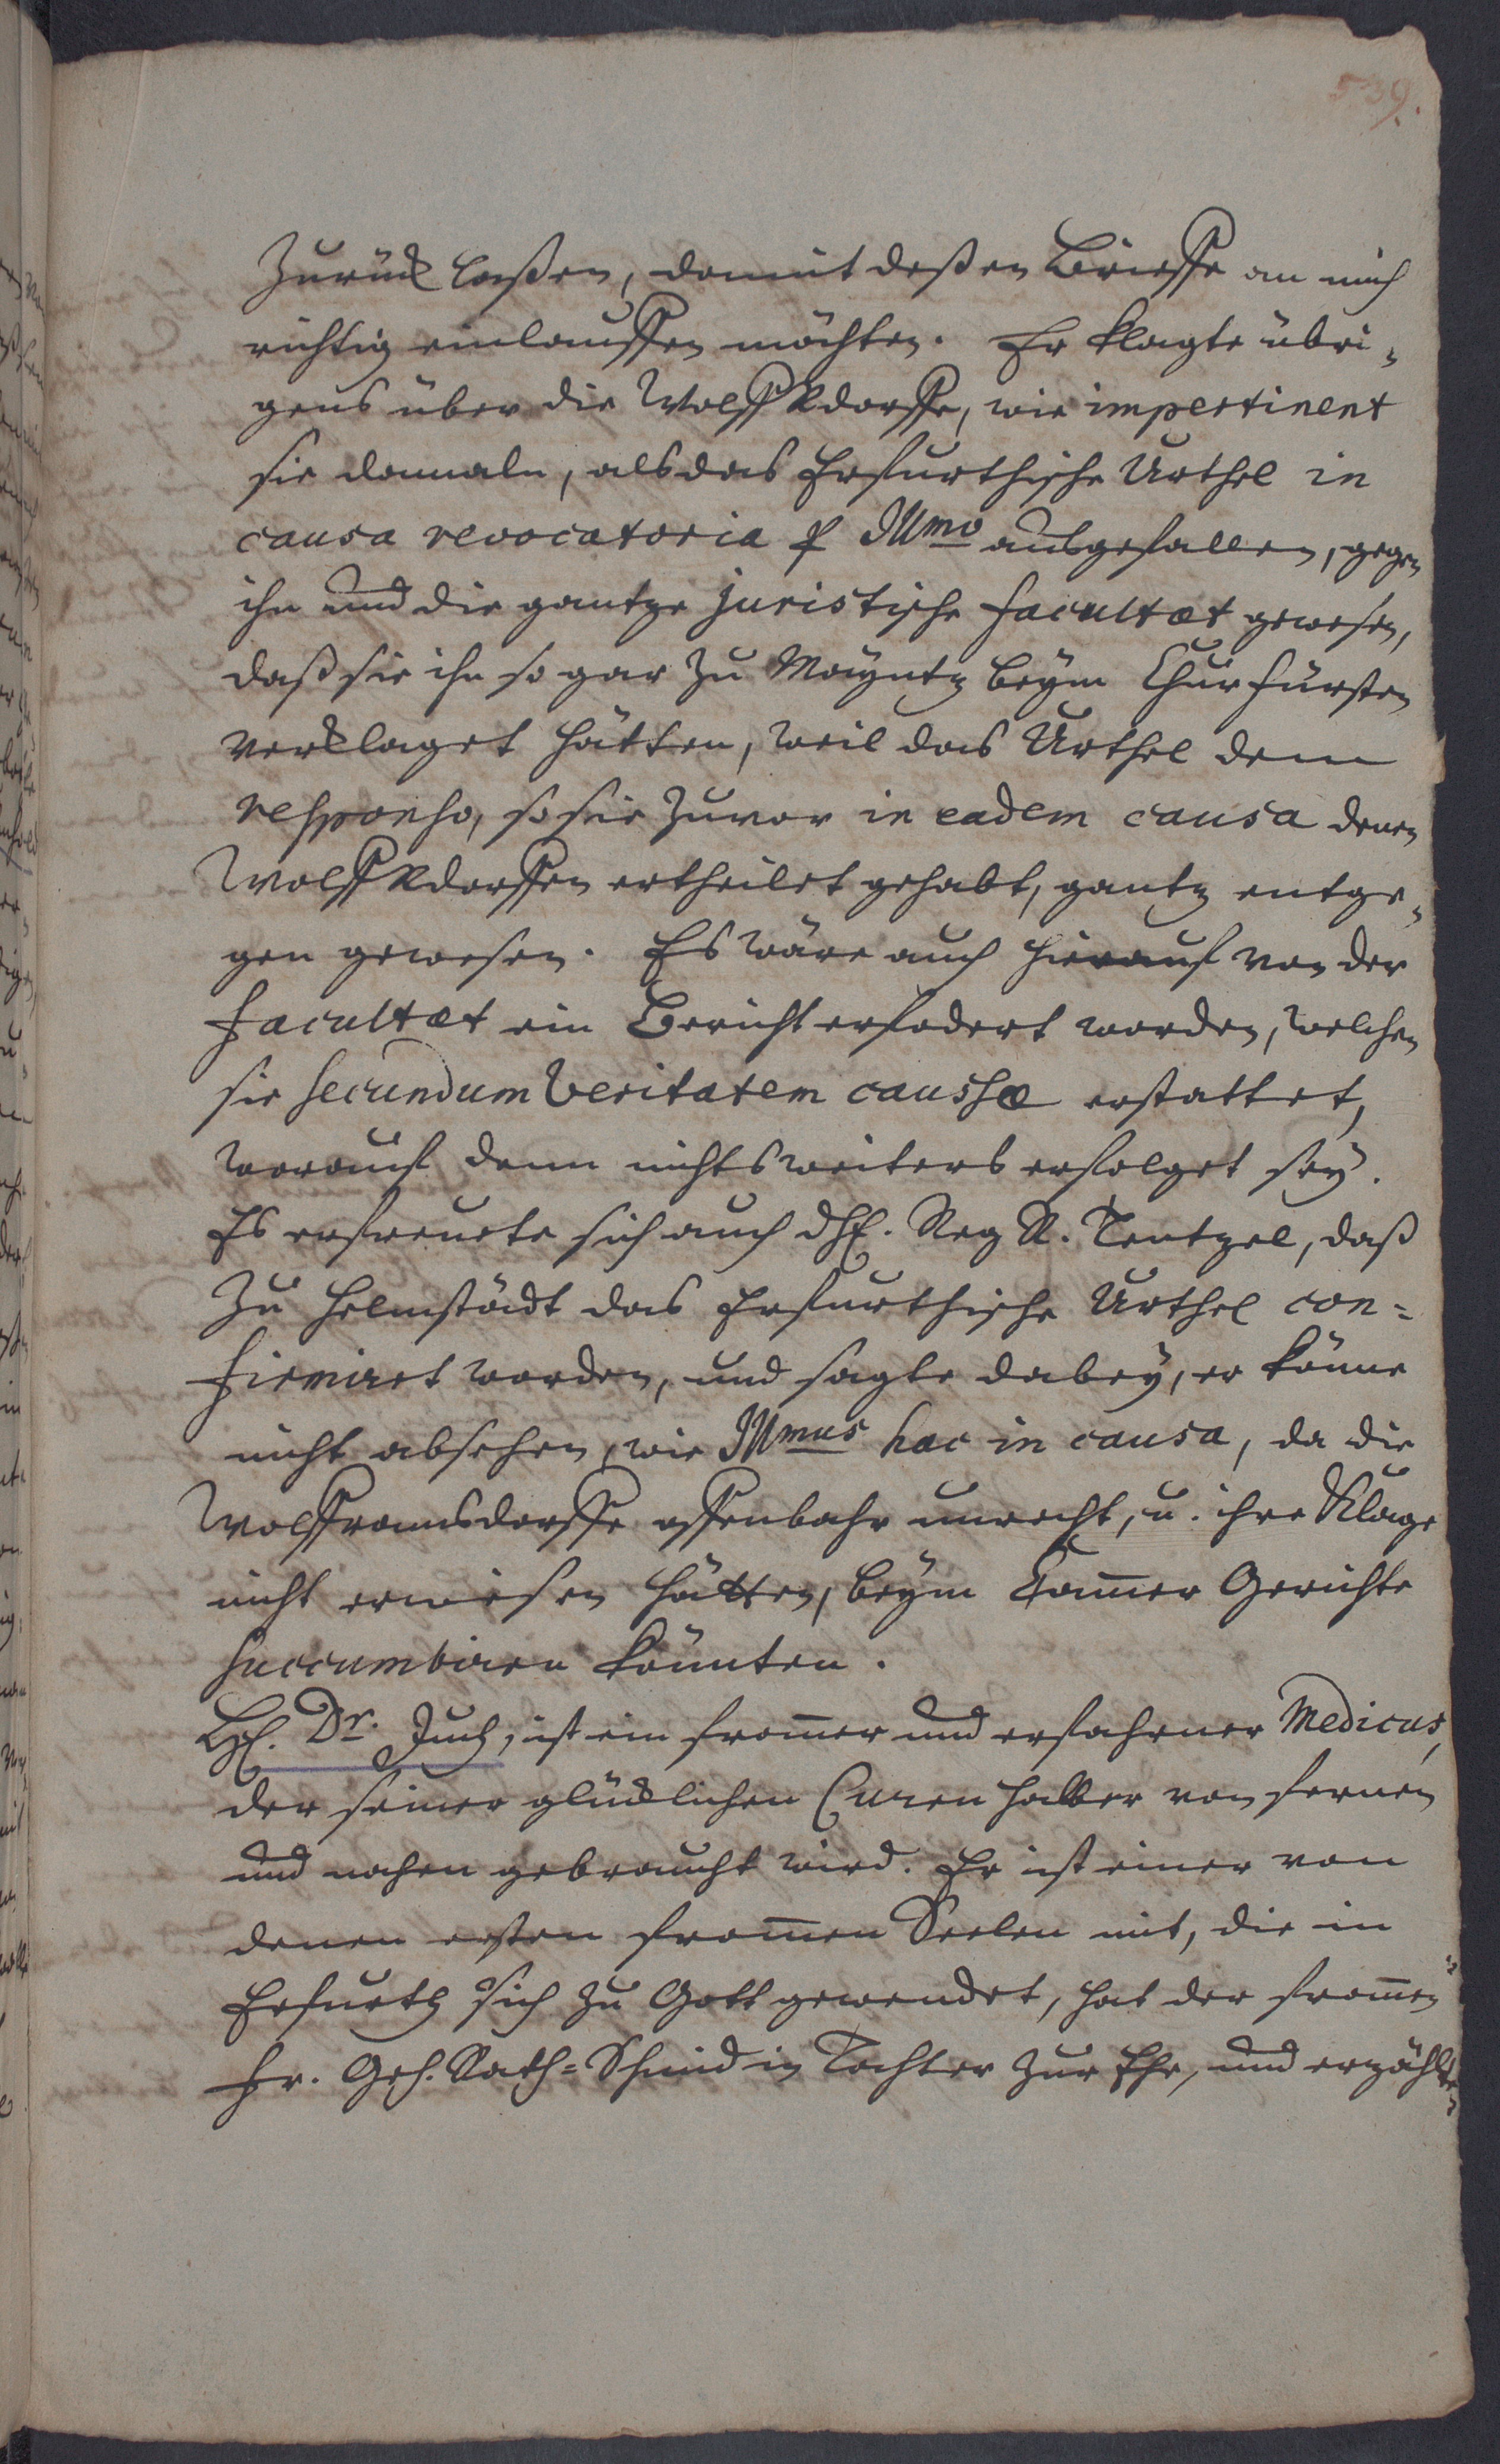 539.
zurück laßen, damit deßen Brieffe an mich
richtig einlauffen möchten. Er klagte übri-
gens über die Wolff Rdorffe, wie impertinent
sie damaln, als das Erfurthische Urthel in
causa revocatoria p Illmo ausgefallen, gegen
ihn und die gantze juristische Facultæt gewesen,
daß sie ihn so gar zu Mayntz beym Churfürsten
verklaget hätten, weil das Urthel dem
responso, so sie zuvor in eadem causa denen
Wolff Rdorffen ertheilet gehabt, gantz entge-
gen gewesen. Es wäre auch hierauf von der
Facultæt ein Bericht erfodert worden, welchen
sie secundum veritatem caussæ erstattet,
worauf denn nichts weiters erfolget sey.
Es erfreuete sich auch Hr. Reg R. Tentzel, daß
zu Helmstädt das Erfurthische Urthel con=
firmiret worden, und sagte dabey, er könne
nicht absehen, wie Illmus hac in causa, da die
Wolfframsdorffe offenbahr unrecht, u. ihre Klage
nicht erwiesen hätten, beym Cam̅er Gerichte
succumbiren könnten.
Hr. Dr. Juch, ist ein from̅er und erfahrner Medicus,
der seiner glücklichen Curen halber von fernen
und nahen gebraucht wird. Er ist einer von
denen ersten from̅en Seelen mit, die in
Erfurth sich zu Gott gewendet, hat der from̅en
Fr. Geh. Rath=Schmidin Tochter zur Ehe, und erzählte